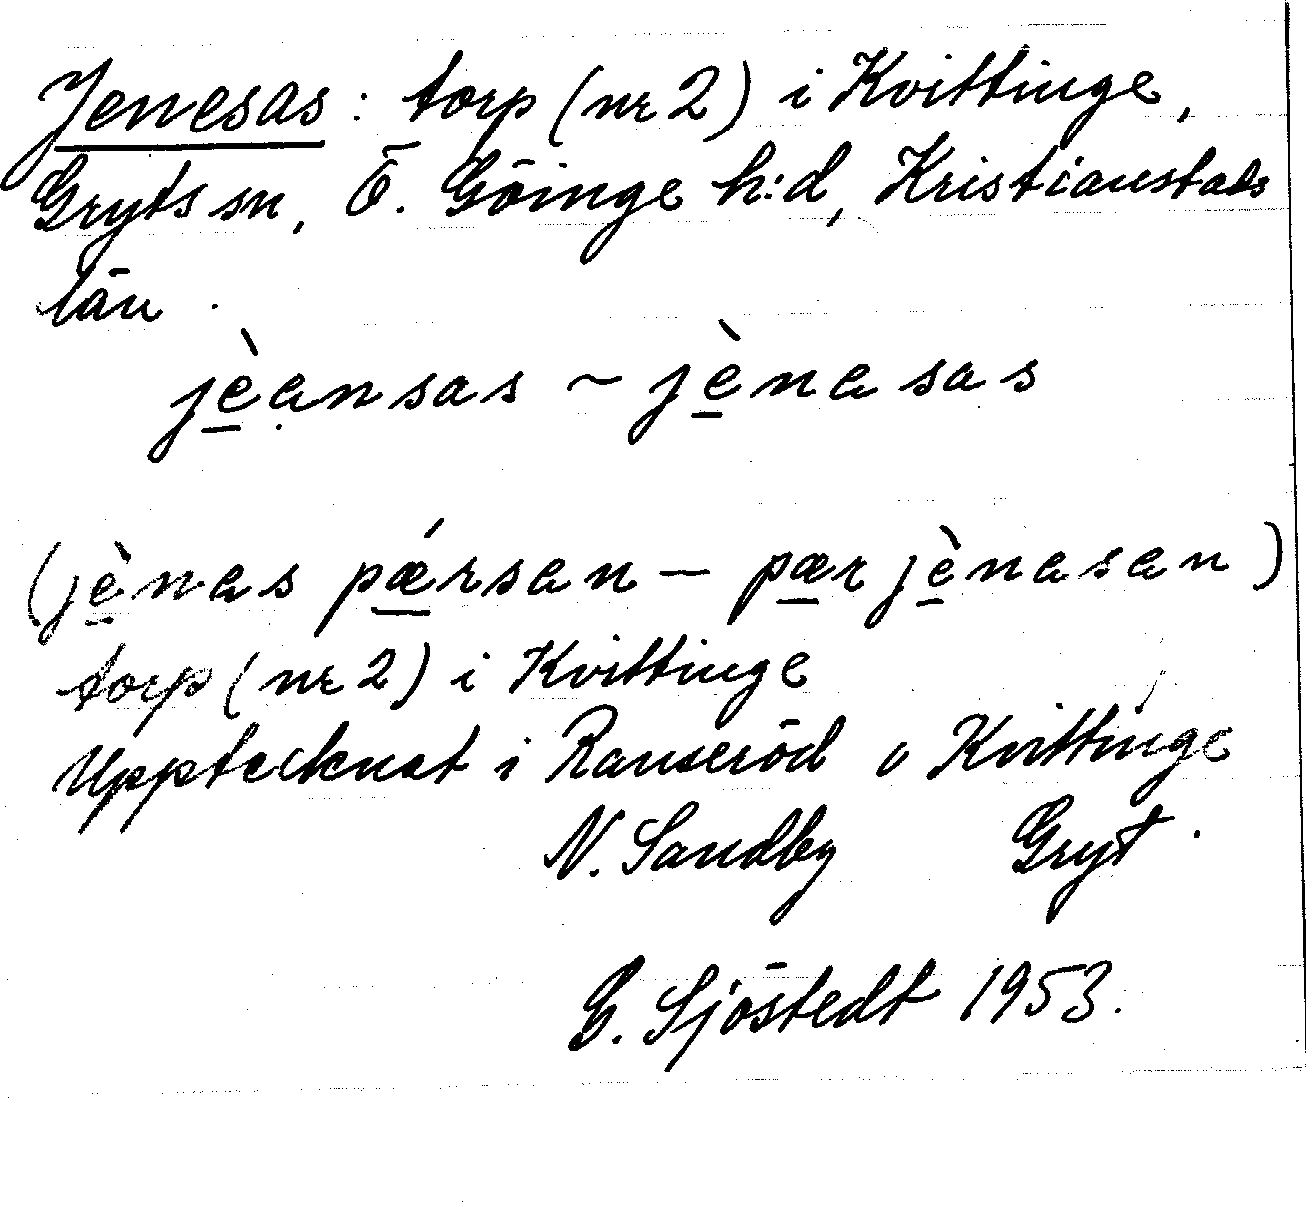 Jenesas: torp (nr 2) i Kvittinge,
Gryts sn, Ö. Göinge h:d, Kristianstads
län.
jèansas ~ jènasas
(jènas pǽrsan — pær jènasan)
torp (nr 2) i Kvittinge
Upptecknat i Ranseröd o Kvittinge
N. Sandby Gryt.
G. Sjöstedt 1953.